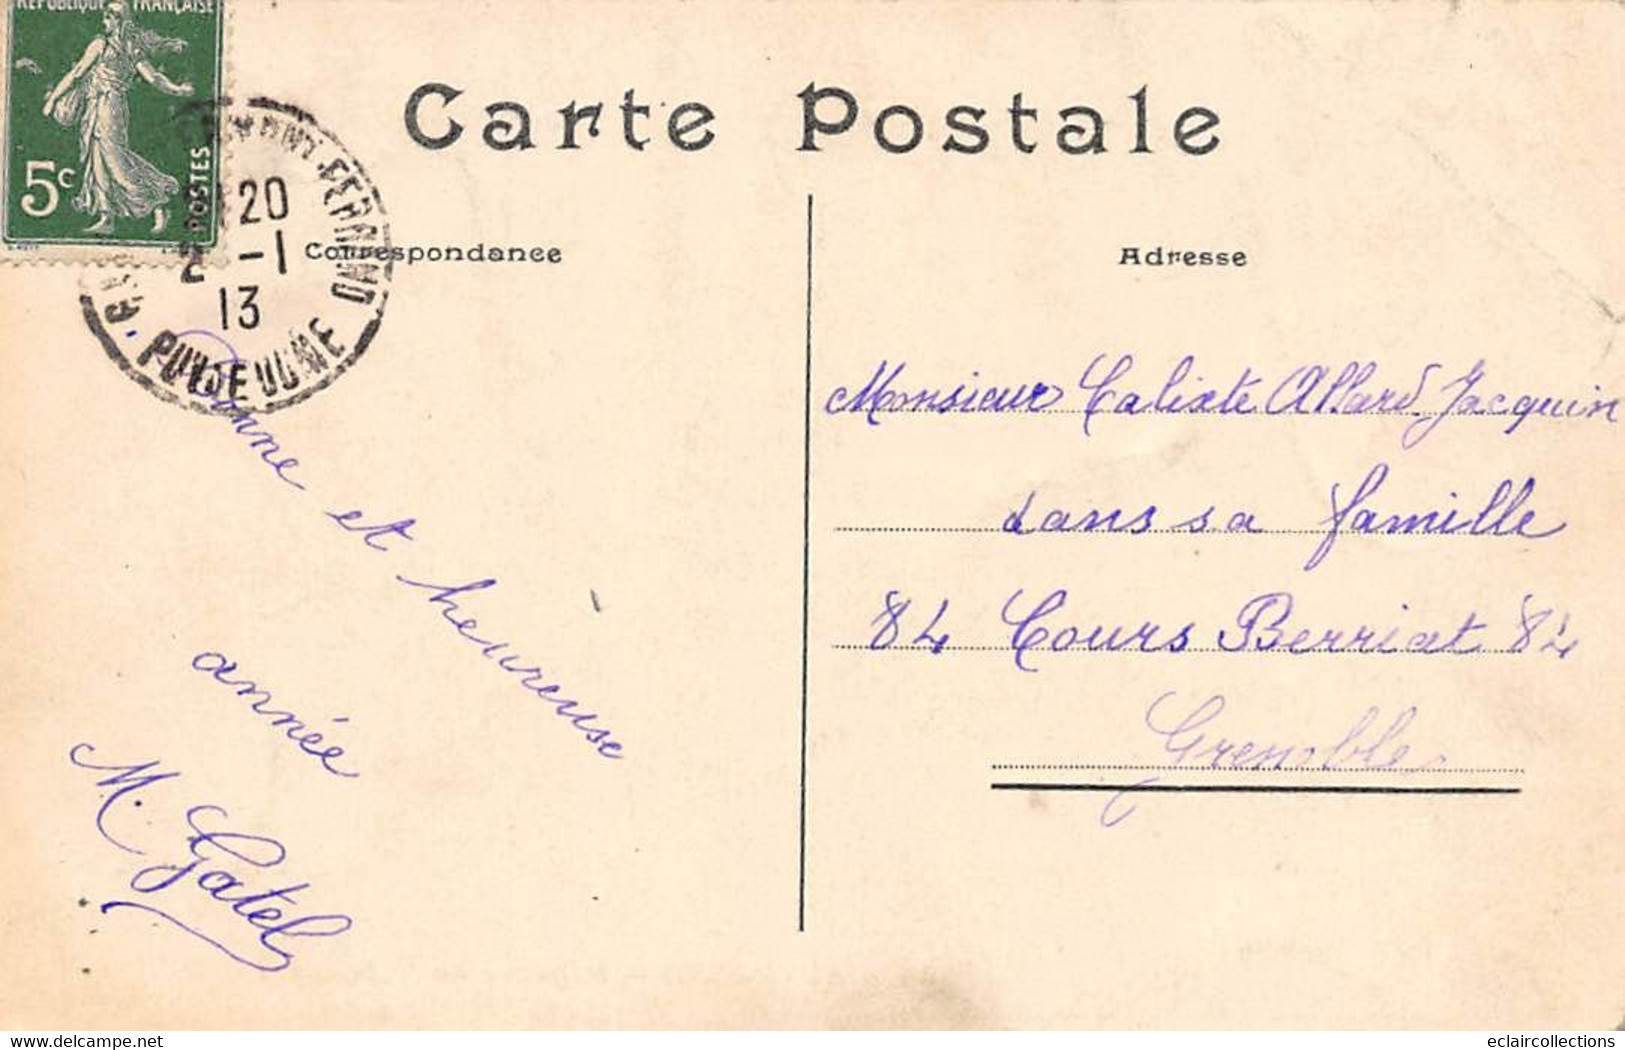 RÉPUBLIQUE FRANÇAISE
5c
POSTES
FERRAND
20
2 -1
13
PUY DE DOME
Carte Postale
Correspondance
Adresse
Bonne et heureuse
année
M. Gatel
Monsieur Calixte Allard Jacquin
dans sa famille
84 Cours Berriat 84
Grenoble
delcampe.net
eclaircollections